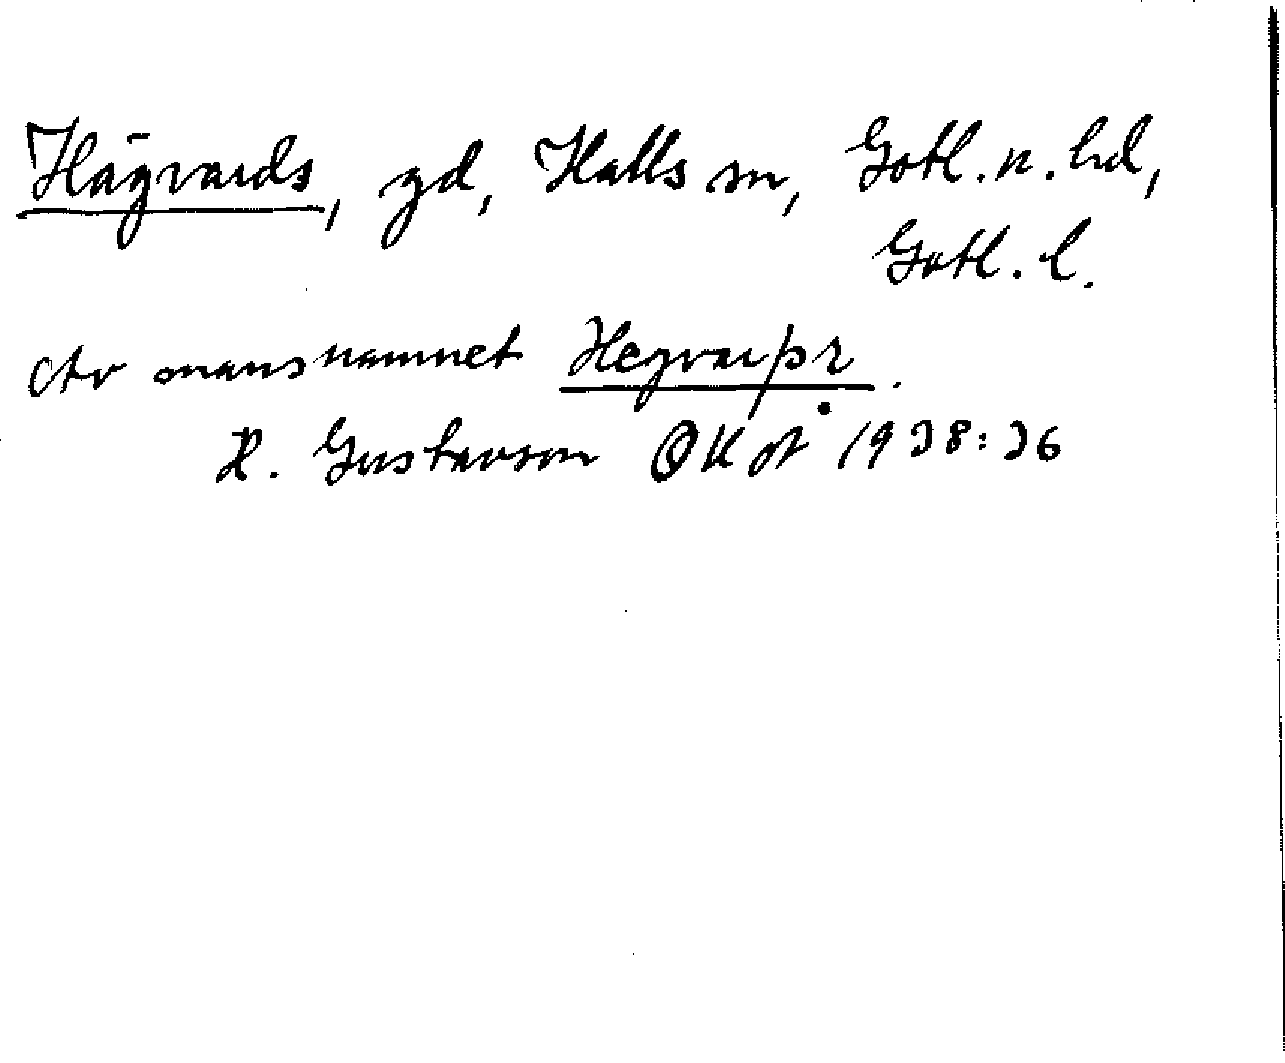 Hägvards, gd, Halls sn, Gotl. n. hd,
Gotl. l.
Av mansnamnet Hegvaiþr.
H. Gustavson OKÅ 1938:36